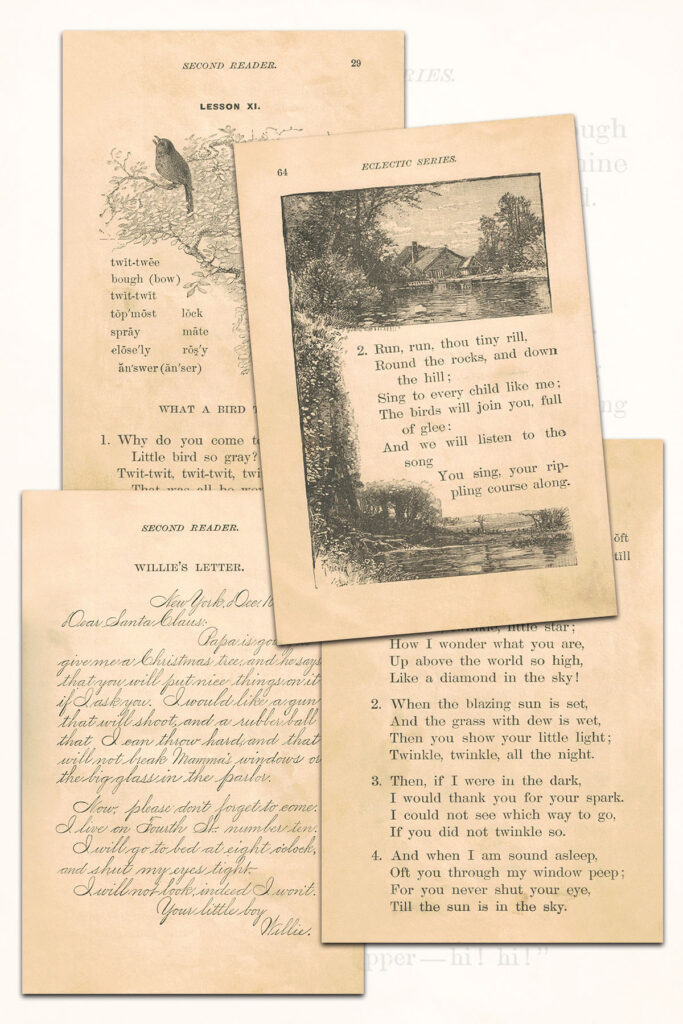 SECOND READER. 29
LESSON XI.
twit-twēe
bough (bow)
twit-twĭt
tŏp'mōst lŏck
sprāy māte
clōse'ly rōṣ'y
ăn'swer (ăn'ser)
WHAT A BIRD
1. Why do you come
Little bird so gray?
Twit-twit, twit-twit,
That was all he
64 ECLECTIC SERIES.
2. Run, run, thou tiny rill,
Round the rocks, and down
the hill;
Sing to every child like me;
The birds will join you, full
of glee:
And we will listen to the
song
You sing, your rip-
pling course along.
SECOND READER.
WILLIE'S LETTER.
New York, Dec.
Dear Santa Claus:
Papa is
give me a Christmas tree, and he says
that you will put nice things on it
if I ask you. I would like a gun
that will shoot, and a rubber ball
that I can throw hard, and that
will not break Mamma's windows or
the big glass in the parlor.
Now, please don't forget to come.
I live on Fourth St. number ten.
I will go to bed at eight o'clock,
and shut my eyes tight.
I will not look, indeed I won't.
Your little boy,
Willie.
ŏft
tĭll
twinkle, little star;
How I wonder what you are,
Up above the world so high,
Like a diamond in the sky!
2. When the blazing sun is set,
And the grass with dew is wet,
Then you show your little light;
Twinkle, twinkle, all the night.
3. Then, if I were in the dark,
I would thank you for your spark.
I could not see which way to go,
If you did not twinkle so.
4. And when I am sound asleep,
Oft you through my window peep;
For you never shut your eye,
Till the sun is in the sky.
pper—hi! hi!"